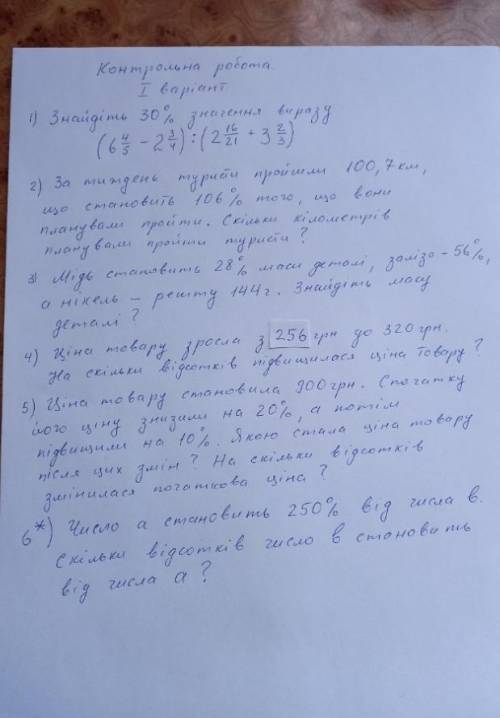 Контрольна робота.
I варіант
1) Знайдіть 30% значення виразу
(6 4/5 - 2 3/4) : (2 16/21 + 3 2/3)
2) За тиждень туристи пройшли 100,7 км,
що становить 106% того, що вони
планували пройти. Скільки кілометрів
планували пройти туристи?
3) Мідь становить 28% маси деталі, залізо - 56%,
а нікель - решту 144 г. Знайдіть масу
деталі?
4) Ціна товару зросла з 256 грн до 320 грн.
На скільки відсотків підвищилася ціна товару?
5) Ціна товару становила 900 грн. Спочатку
його ціну знизили на 20%, а потім
підвищили на 10%. Якою стала ціна товару
після цих змін? На скільки відсотків
змінилася початкова ціна?
6*) Число а становить 250% від числа в.
Скільки відсотків число в становить
від числа а?